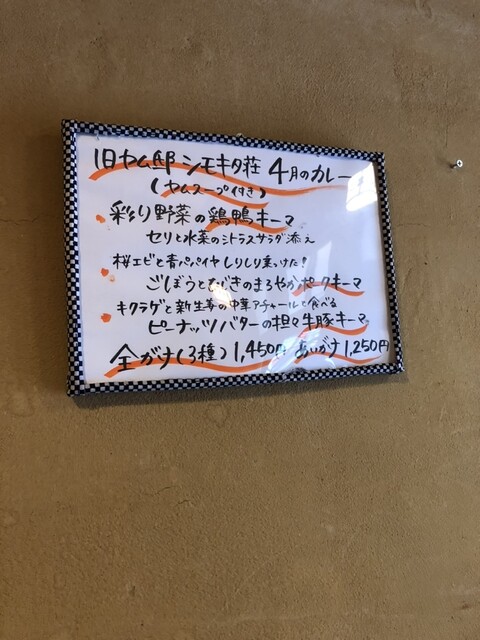 旧ヤム邸 シモキタ荘 4月のカレー
(ヤムスープ付き)
彩り野菜の鶏鴨キーマ
セリと水菜のシトラスサラダ添え
桜エビと青パパイヤしりしり乗っけた!
ごぼうとむぎのまろやかポークキーマ
キクラゲと新生姜の中華アチャールと食べる
ピーナッツバターの担々牛豚キーマ
全がけ(3種) 1,450円 あいがけ 1,250円